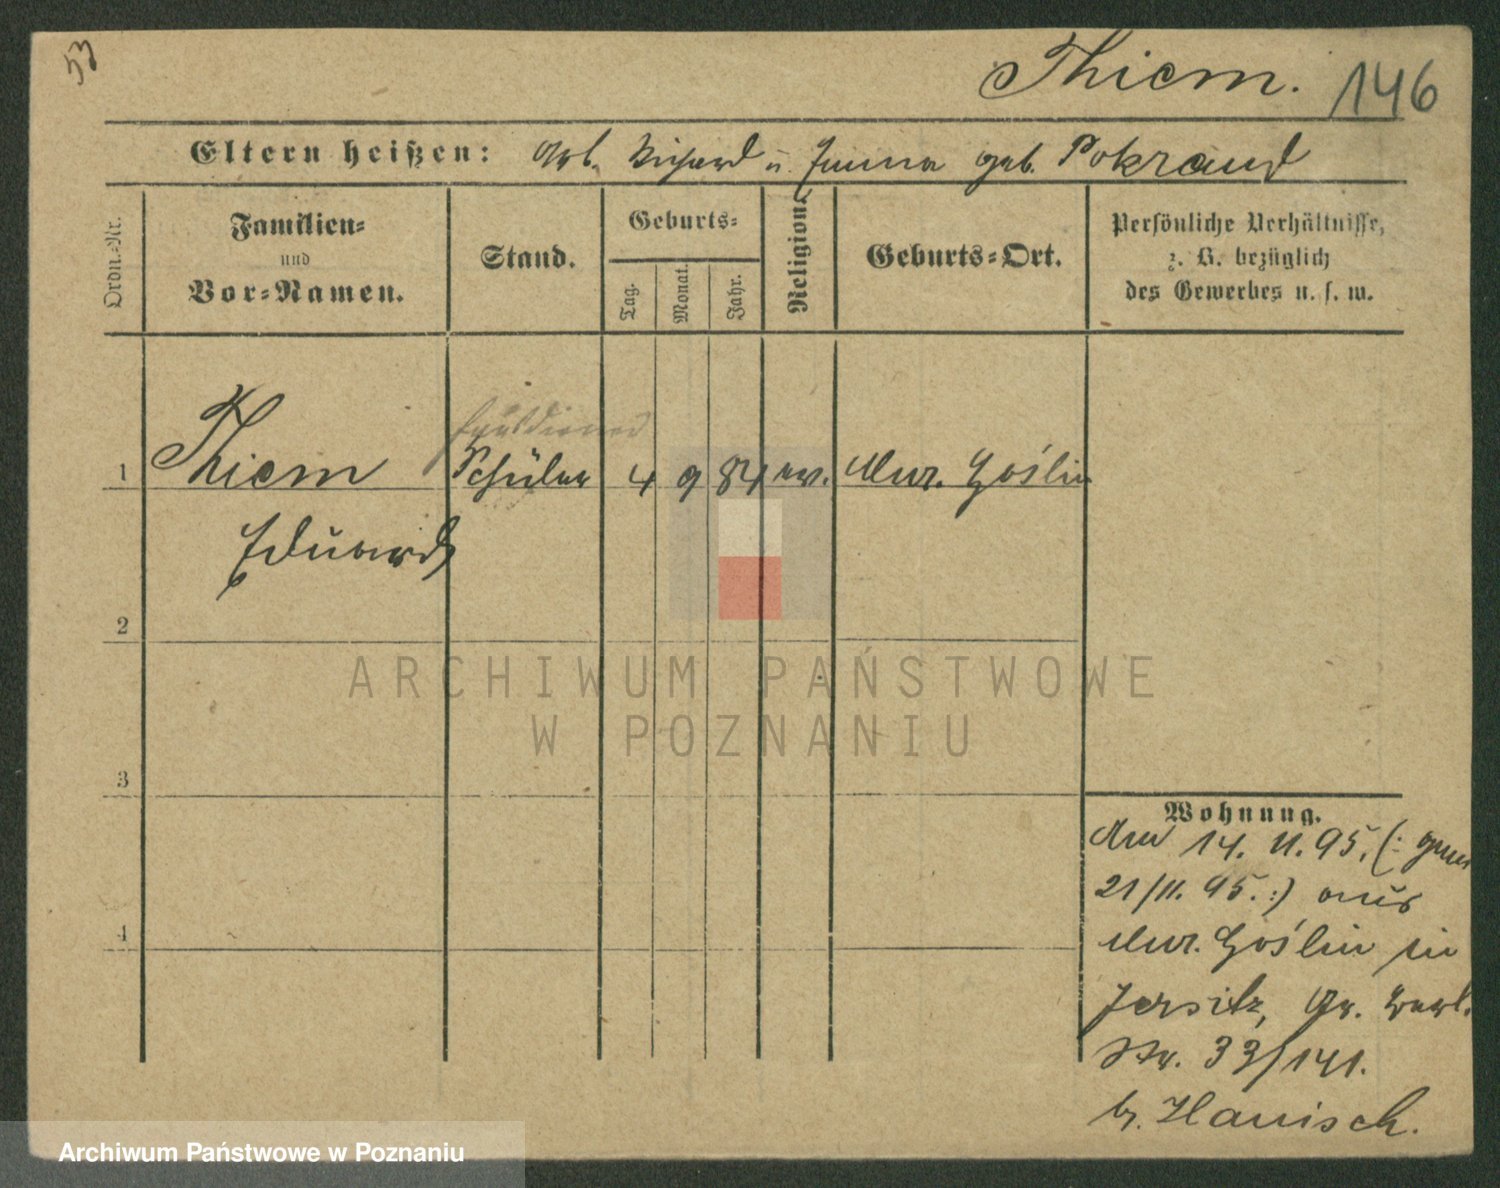 53
Thiem. 146
Eltern heißen: Arb. Richard u. Emma geb. Pokrand
Ordn.-Nr.
Familien-
und
Vor-Namen.
Stand.
Geburts-
Tag.
Monat.
Jahr.
Religion.
Geburts-Ort.
Persönliche Verhältnisse,
z. B. bezüglich
des Gewerbes u. s. w.
1 Thiem Schüler 4 9 84 ev. Mur. Goślin
Eduard
2
3
4
Wohnung.
Am 14. 11. 95. (: gem
21/11. 95. :) aus
Mur. Goślin in
Jersitz, Gr. Berl.
Str. 33/141.
b. Hanisch.
ARCHIWUM PAŃSTWOWE
W POZNANIU
Archiwum Państwowe w Poznaniu